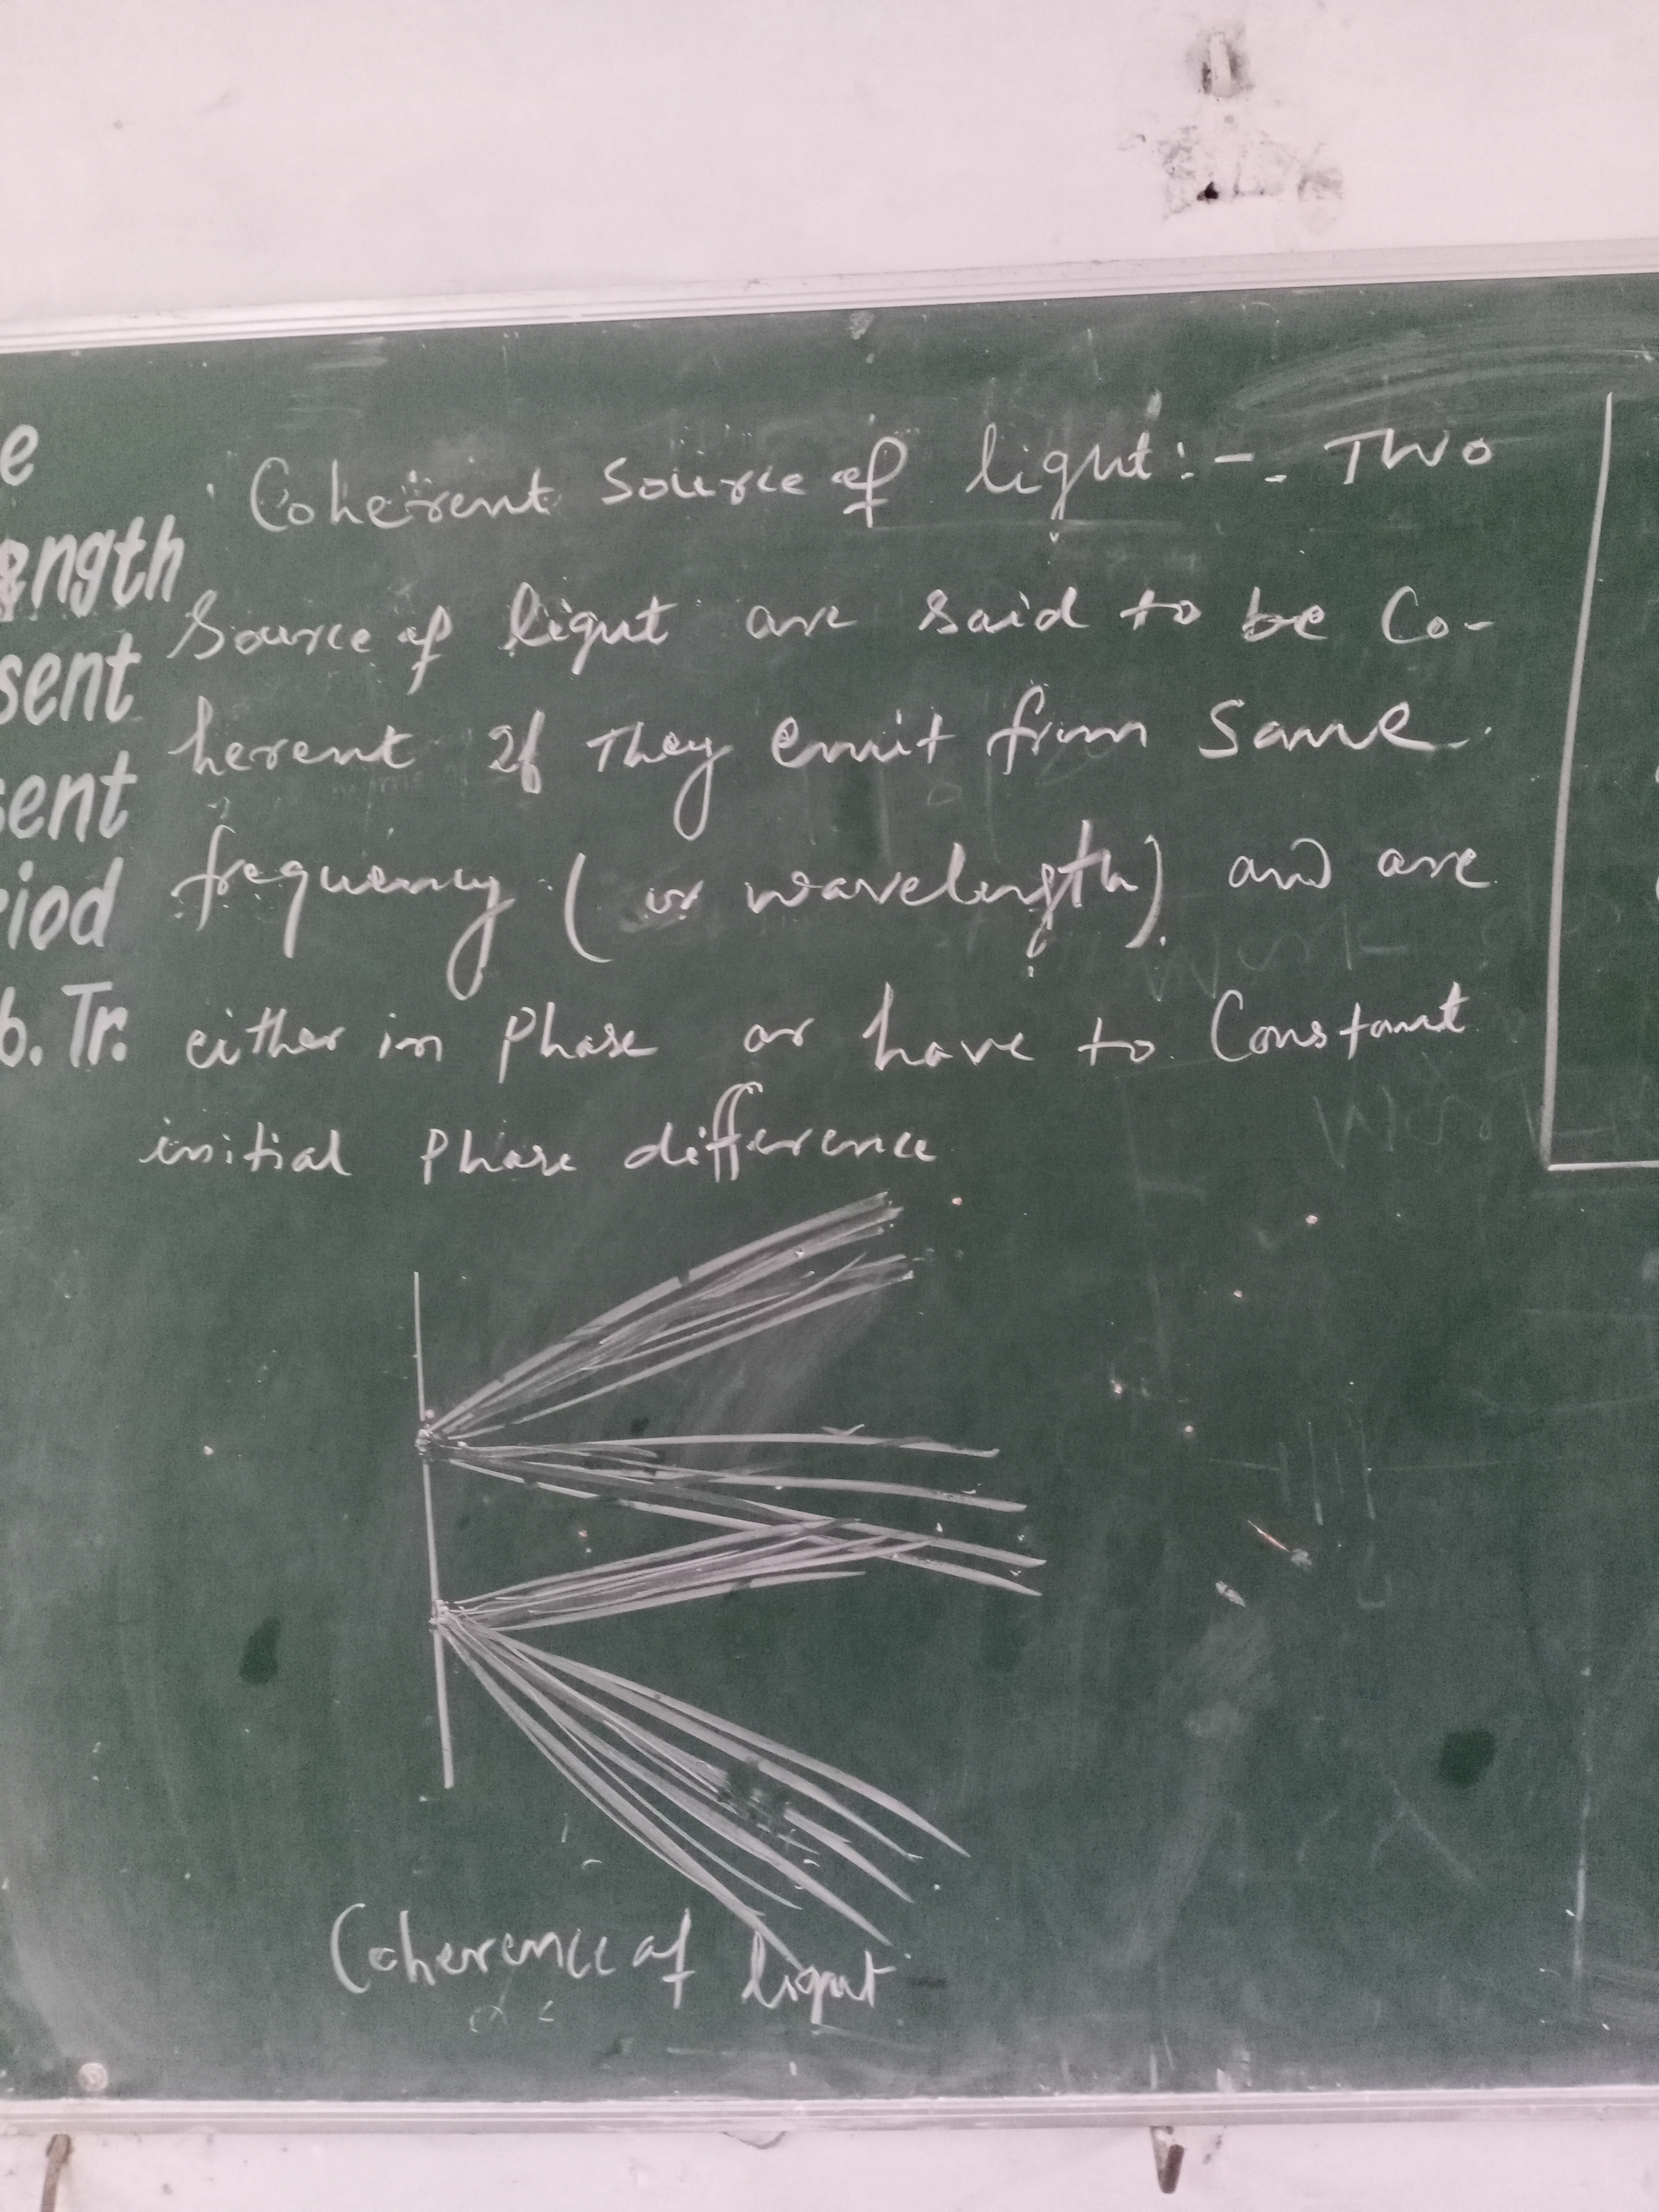 e
ength
sent
sent
riod
b. Tr.
Coherent Source of light:- Two
Source of light are said to be Co-
herent If They emit from Same
frequency (or wavelength) and are
either in Phase or have to Constant
initial Phase difference
Coherence of light